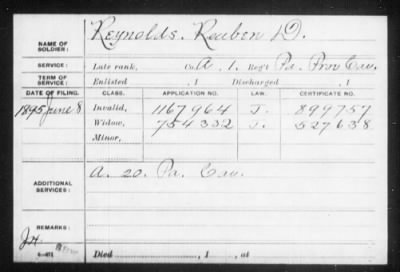 NAME OF SOLDIER: Reynolds, Reuben D.
SERVICE: Late rank, Co. A, 1, Reg't Pa. Prov Cav.
TERM OF SERVICE: Enlisted , 1 Discharged , 1
DATE OF FILING. CLASS. APPLICATION NO. LAW. CERTIFICATE NO.
1895 June 8 Invalid, 1167964 J. 899757
Widow, 754332 J. 527638
Minor,
ADDITIONAL SERVICES: A. 20. Pa. Cav.
REMARKS:
Died , 1 , at